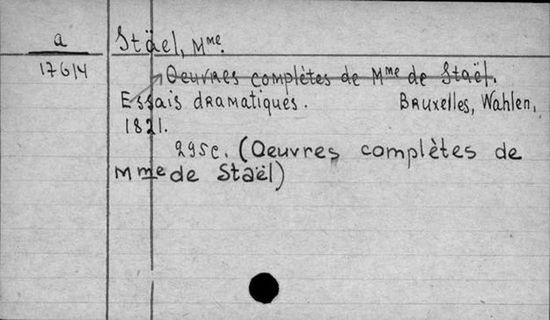 a
17614
Stäel, Mme.
Oeuvres complètes de Mme de Staël.
Essais dramatiques. Bruxelles, Wahlen,
1821.
295c. (Oeuvres complètes de
Mme de Staël)